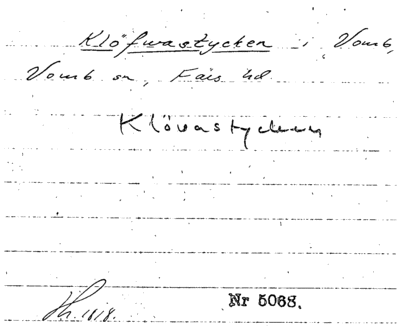 Klöfwastycken i Vomb,
Vomb sn, Färs hd
Klövastycken
Nr 5068.